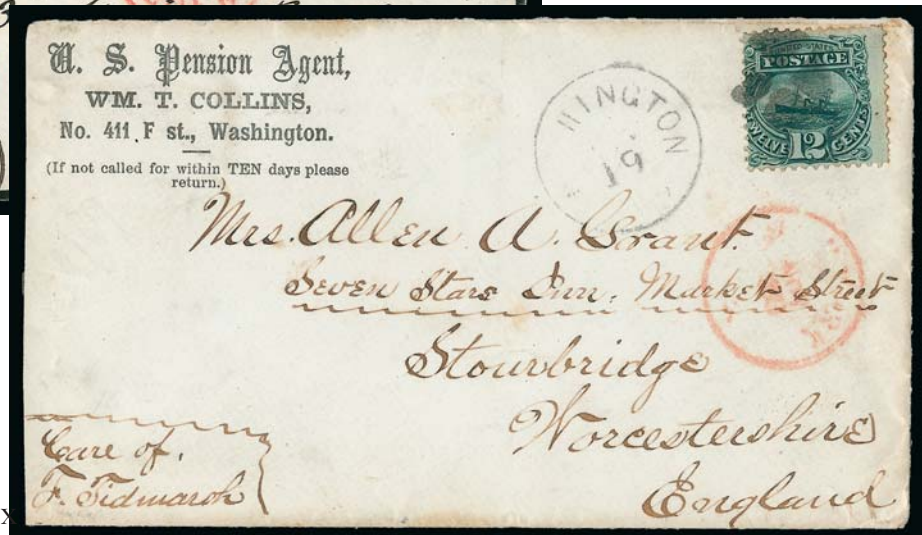 U. S. Pension Agent,
WM. T. COLLINS,
No. 411 F st., Washington.
(If not called for within TEN days please
return.)
HINGTON
19
UNITED STATES
POSTAGE
12
TWELVE CENTS
Mrs. Allen A. Grant.
Seven Stars Inn. Market Street
Stourbridge
Worcestershire
England
Care of.
F. Tidmarsh
X